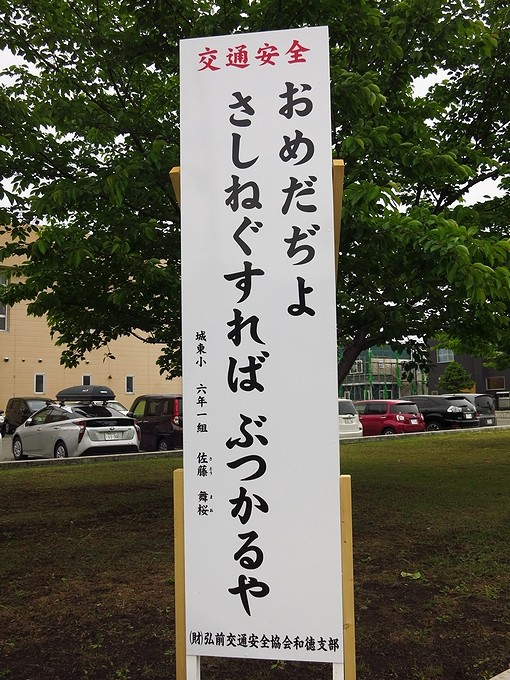 交通安全
おめだぢよ
さしねぐすれば ぶつかるや
城東小 六年一組 佐藤 舞桜
さとう まお
(財)弘前交通安全協会和徳支部